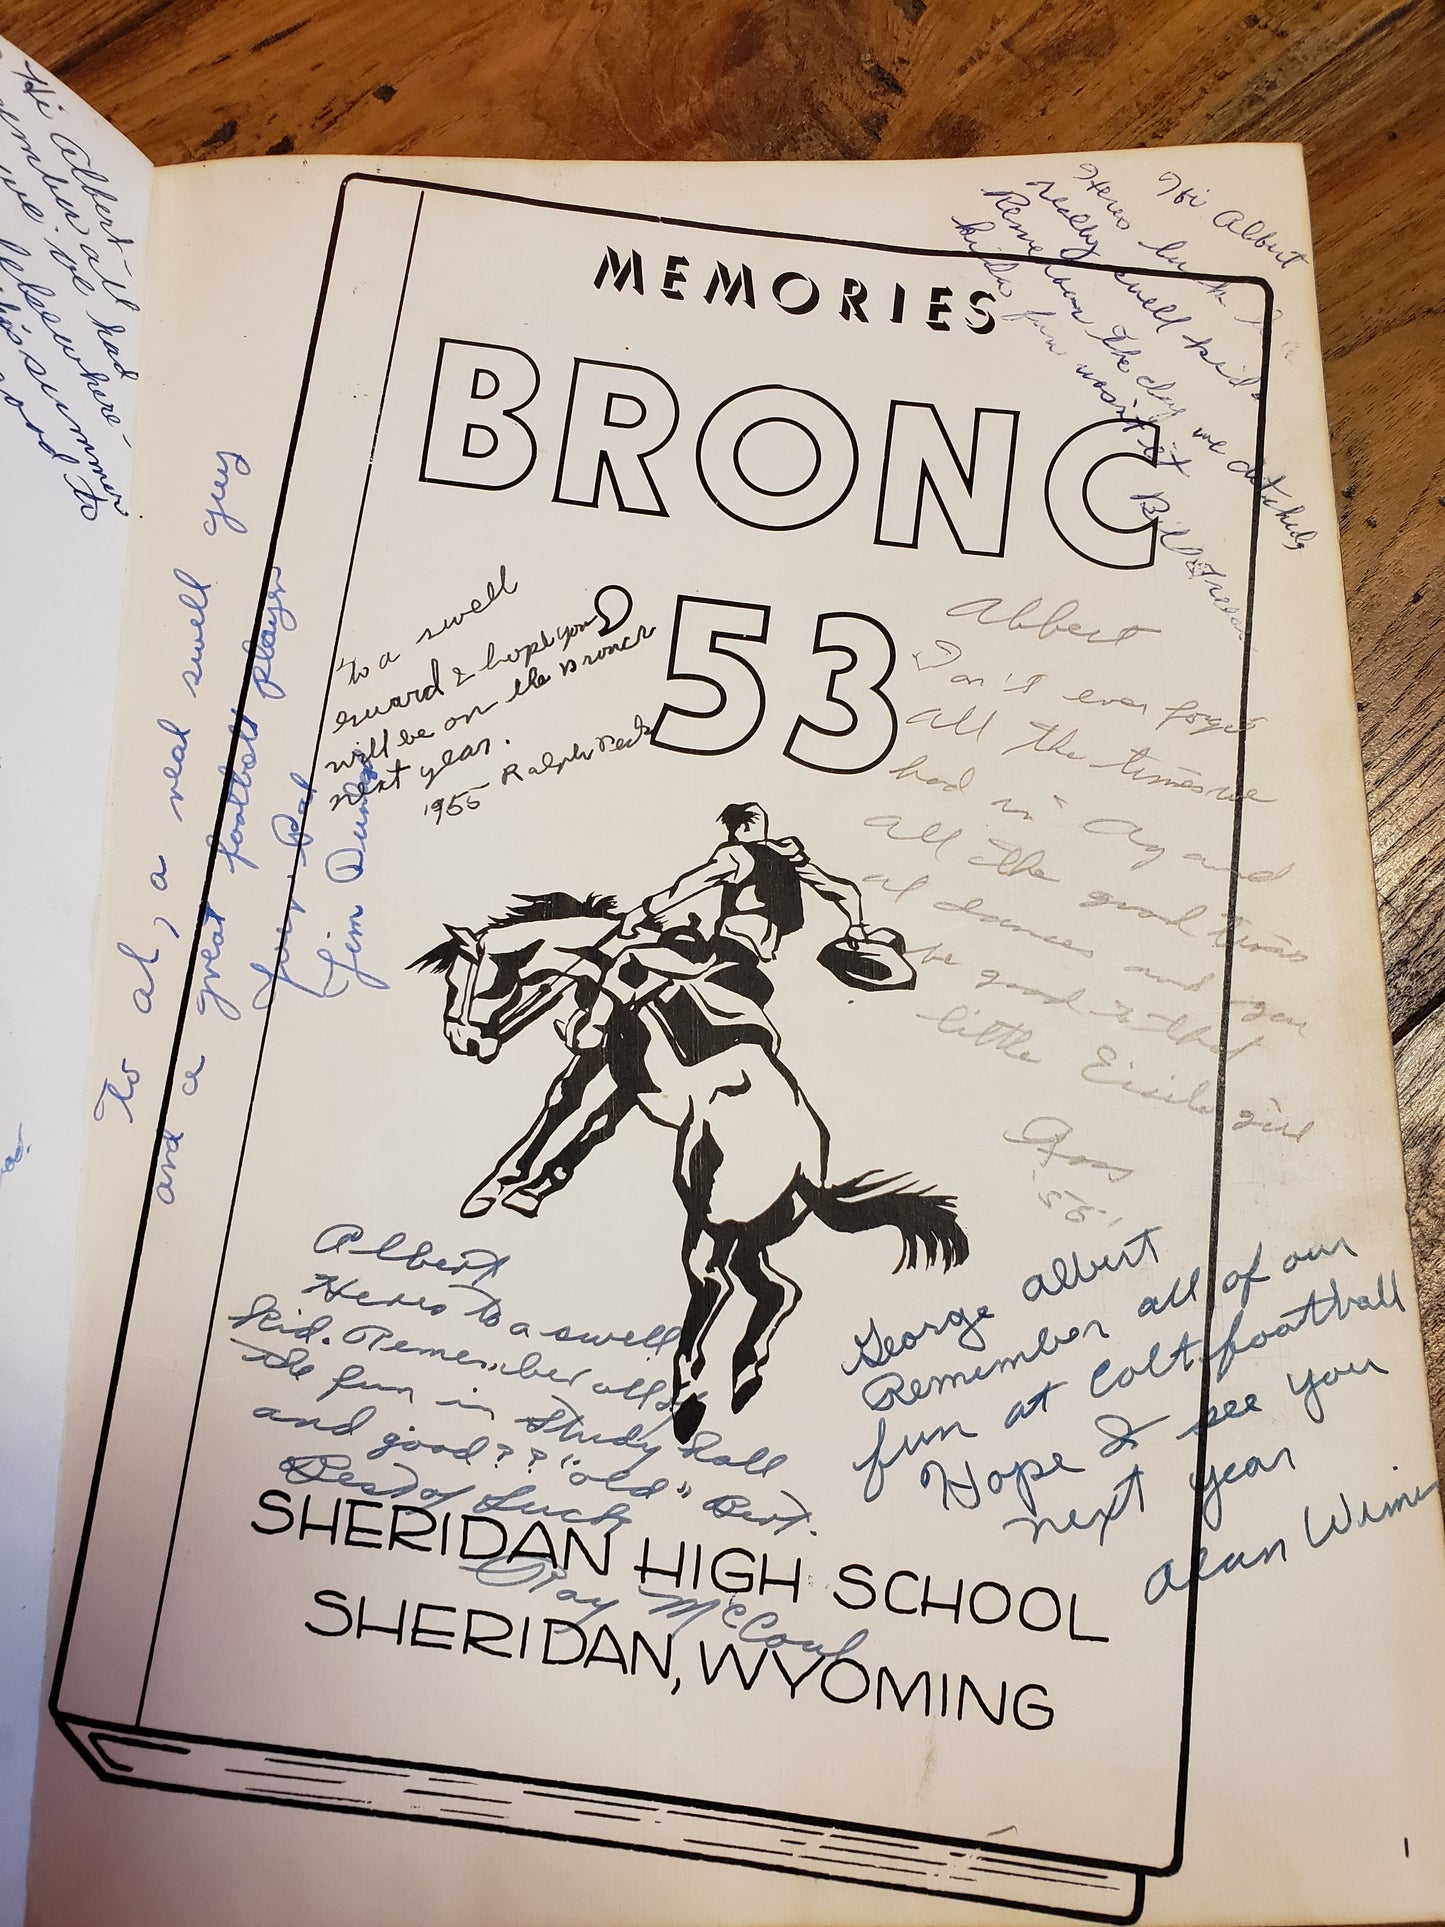 Hi Albert
all had
we. We
elsewhere-
this summer
to
Hi Albert
Heres luck to a
really swell kid
Remember the day we
fun wasn't it
Bill
MEMORIES
BRONC
'53
To a swell
guard & hope you
will be on the Broncs
next year.
1955 Ralph
To al, a real swell guy
and a great football player
Your Pal
Jim
Albert
Don't ever forget
all the times we
had in Ag and
all the good times
at dances and you
be good to that
little girl
'55'
Albert
Heres to a swell
kid. Remember all of
the fun in Study Hall
and good?? "old" Bert.
Best of Luck
Ray McCoul
George Albert
Remember all of our
fun at Colt football
Hope I see you
next year
Alan
SHERIDAN HIGH SCHOOL
SHERIDAN, WYOMING
1